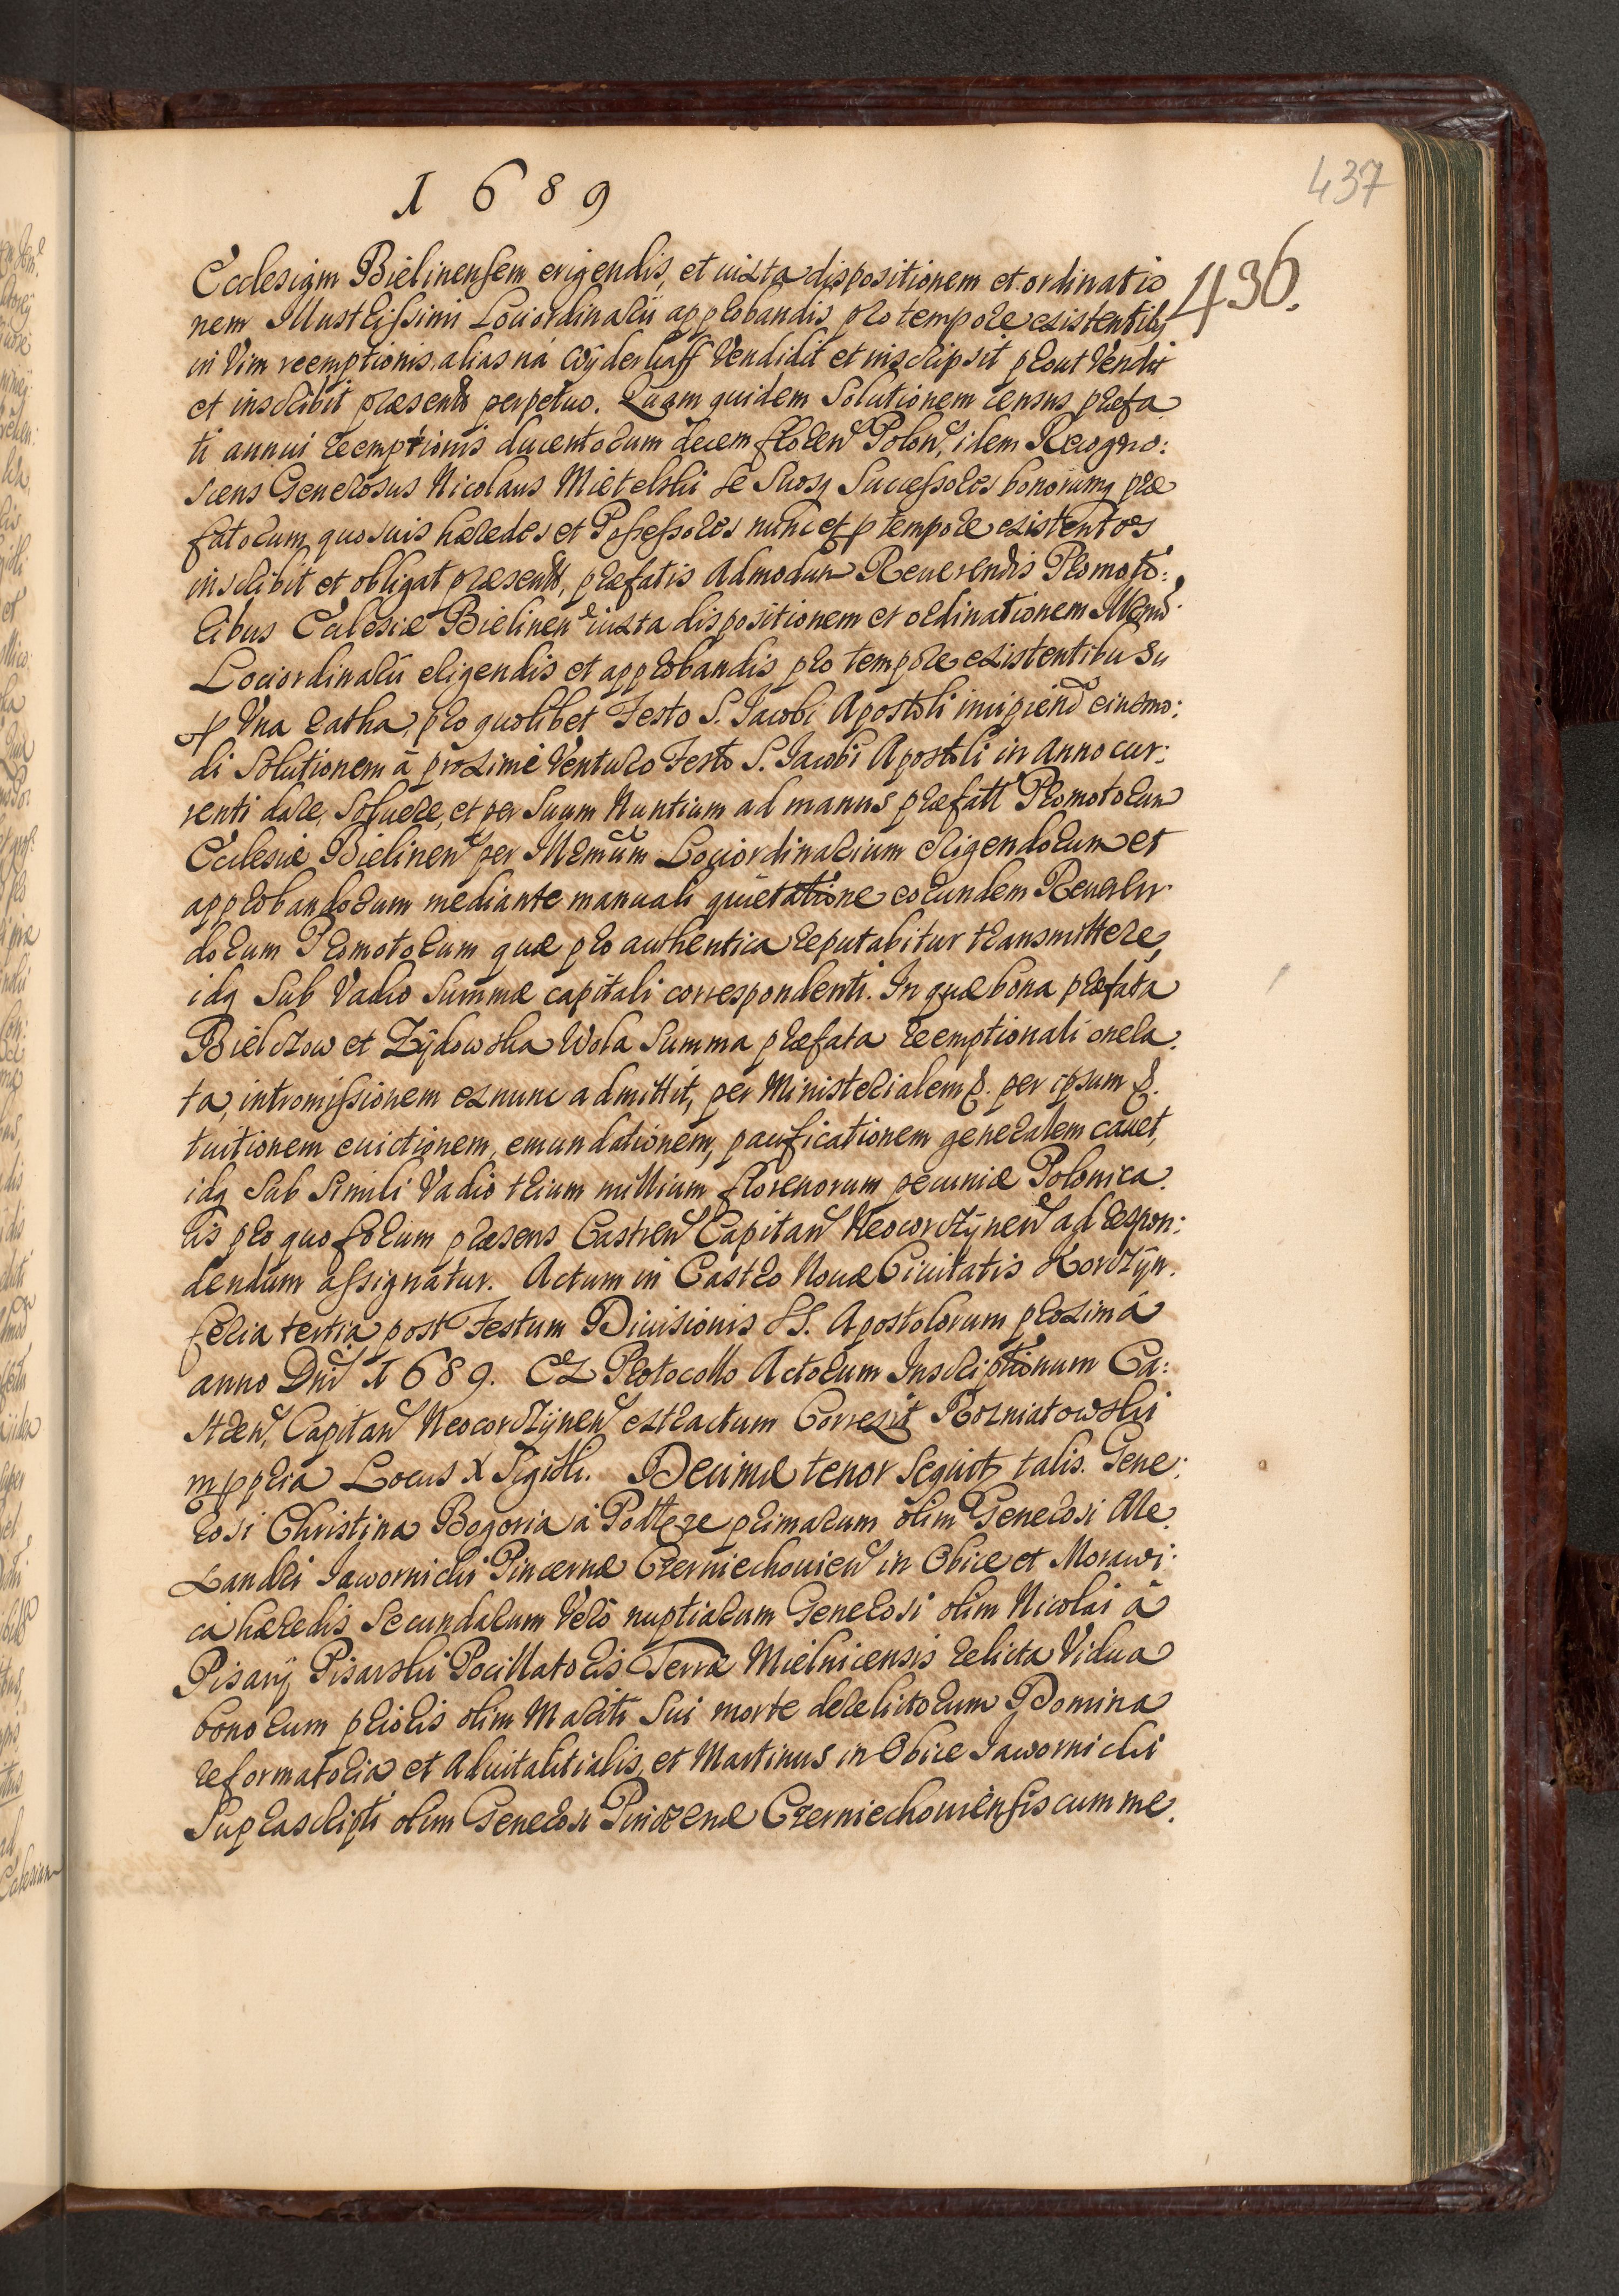 1689
437
436.
Ecclesiam Bielinensem erigendis, et iuxta dispositionem et ordinatio
nem Illustrissimi Lociordinarii approbandis pro tempore existentibq
in Vim reemptionis alias ná Wyderkaff Vendidit et inscripsit prout Vendit
et inscribit præsentt perpetuo. Quam quidem Solutionem census præfa
ti annui reemptionis ducentorum decem floren Polon, idem Recogno:
scens Generosus Nicolaus Mietelski se Suosq Successores bonorumq præ
fatorum quosuis hæredes et Possessores nunc et p tempore existentes
inscribit et obligat præsentt, præfatis Admodum Reuerendis Promoto:
ribus Ecclesiæ Bielinen iuxta dispositionem et ordinationem Illmi
Lociordinarii eligendis et approbandis pro tempore existentibus u
p Vna ratha, pro quolibet Festo S. Iacobi Apostoli incipiend eiusmo:
di Solutionem à proxime Venturo Festo S. Iacobi Apostoli in Anno cur:
renti dare, Soluere, et per Suum Nuntium ad manus præfatt Promotorum
Ecclesiæ Bielinen per Illmum Lociordinarium eligendorum et
approbandorum mediante manuali quietatione eorundem Reueren
dorum Promotorum quæ pro authentica reputabitur transmittere,
idq Sub Vadio Summæ capitali correspondenti. In quæ bona præfata
Bielczow et Zydowska Wola Summa præfata reemptionali onera:
ta, intromissionem exnunc admittit, per Ministerialem &. per ipsum &.
tuitionem euictionem, emundationem, pacificationem generalem cauet,
idq Sub Simili Vadio trium millium florenorum pecuniæ Polonica:
lis pro quo forum præsens Castren Capitan Neocorczynen ad respon:
dendum assignatur. Actum in Castro Nouæ Ciuitatis Korczyn.
feria tertia post Festum Diuisionis SS. Apostolorum proximá
anno Dni 1689. Ex Protocollo Actorum Inscriptionum Ca:
stren, Capitan Neocorczynen extractum Correxit Rozniatowski
mppria Locus X Sigilli. Decimæ tenor Sequit talis. Gene:
rosi Christina Bogoria à Podleze primarum olim Generosi Ale:
xandri Iawornicki Pincernæ Czerniechouien in Obice et Morawi:
ca hæredis Secundarum Vero nuptiarum Generosi olim Nicolai à
Pisary Pisarski Pocillatoris Terræ Mielnicensis relicta Vidua
bonorum prioris olim Mariti Sui morte derelictorum Domina
reformatoria et Aduitalitialis, et Martinus in Obice Iawornicki
Suprascripti olim Generosi Pincernæ Czerniechouiensis cum me.